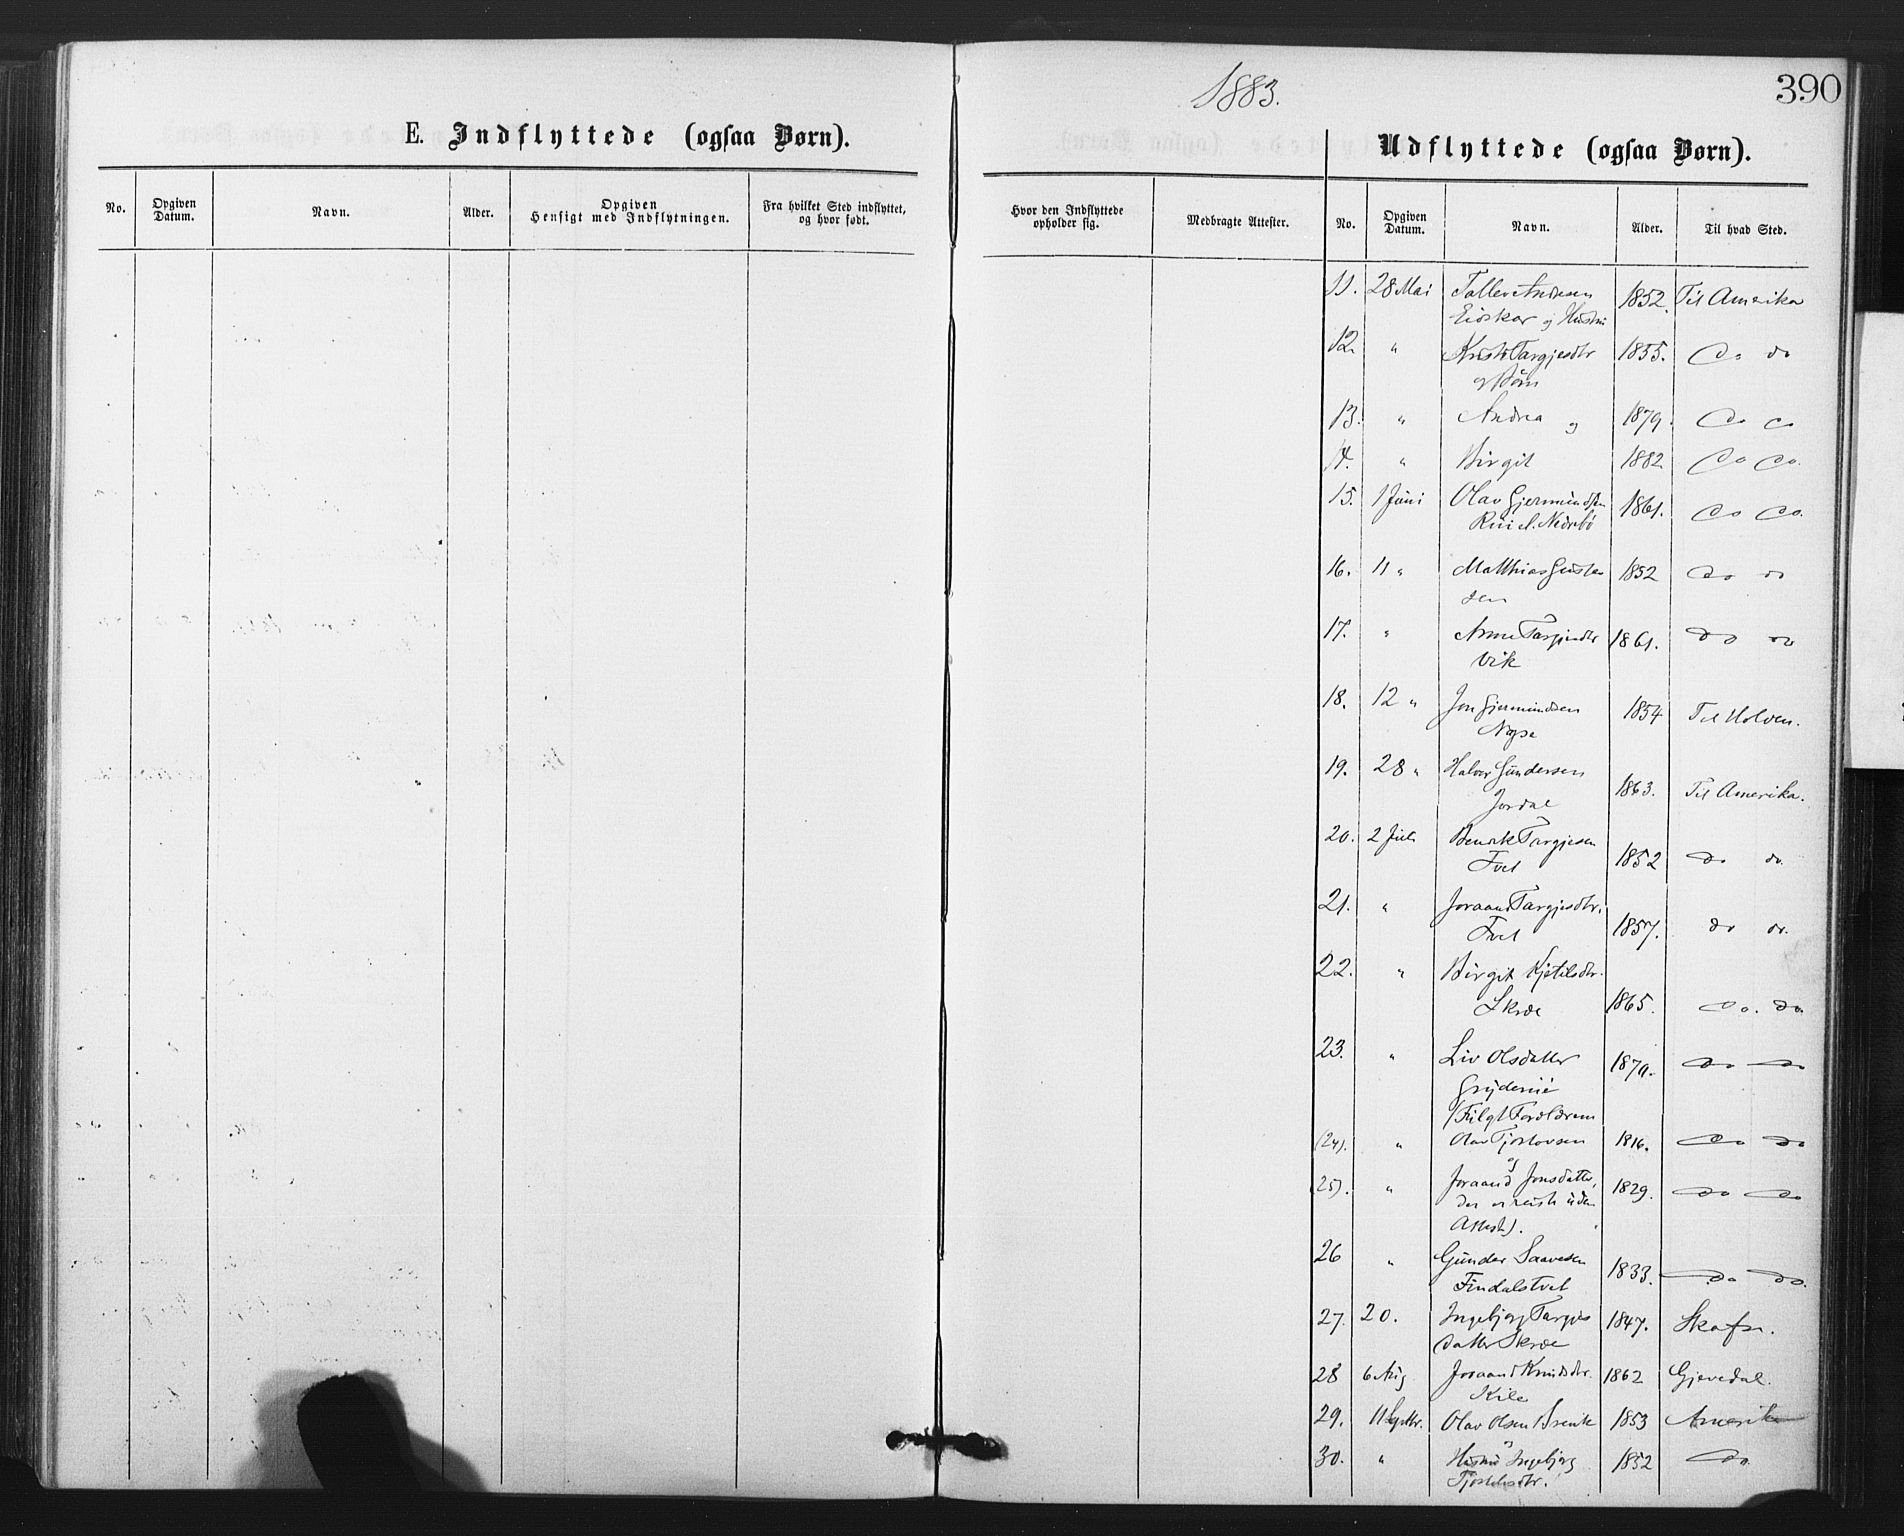 1883.
390
E. Indflyttede (ogsaa Børn).
Udflyttede (ogsaa Børn).
No. Opgiven Datum. Navn. Alder. Opgiven Hensigt med Indflytningen. Fra hvilket Sted indflyttet, og hvor født.
Hvor den Indflyttede opholder sig. Medbragte Attester. No. Opgiven Datum. Navn. Alder. Til hvad Sted.
11. 28 Mai Tallev Andresen 1852. Til Amerika
og Hustru
12. " Targjesdtr 1855. Do do
og Børn
13. " Andrea og 1879. Do Do
14. " Birgit 1882 Do Do.
15. 1 Juni Olav Gjermundsen 1861. Do Do.
16. 11 " Matthias 1852 Do do
sen
17. " Anne 1861. Do do
Vik
18. 12 " Jon Gjermundsen 1854 Til
19. 28 " Halvor Gundersen
Jordal 1863. Til Amerika.
20. 2 Juli Targjesen
Tvet 1852 do do.
21. " Joraand Targjesdtr.
Tvet 1857. do do.
22. " Birgit Kjetilsdtr.
Skroe 1865. do. do
23. " Liv Olsdatter 1879. do do
(Fulgt Forældrene
(24). " Olav 1816. Do do
og
25). " Joraand Jonsdatter, 1829. do do
der er reist uden
Attest).
26 " Gunder Saavesen 1833. do do.
27. 20. Ingebjørg Targjes 1847.
datter Skroe
28 6 Aug Joraand Knudsdtr. 1862 Gjevedal.
Kile
29. 11 Septbr. Olav Olsen 1853 Amerika
30. " Hustru Ingebjørg 1852 Do.